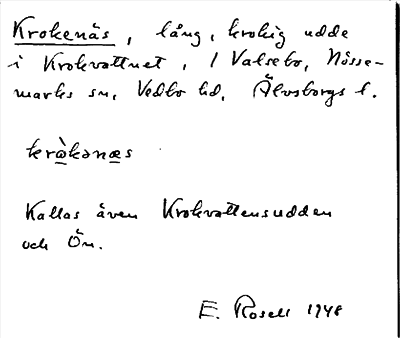 Krokenäs, lång, krokig udde
i Krokvattnet, / Valsebo, Nösse-
marks sn, Vedbo hd, Älvsborgs l.
kròkənæs
Kallas även Krokvattensudden
och Ön.
E. Rosell 1948